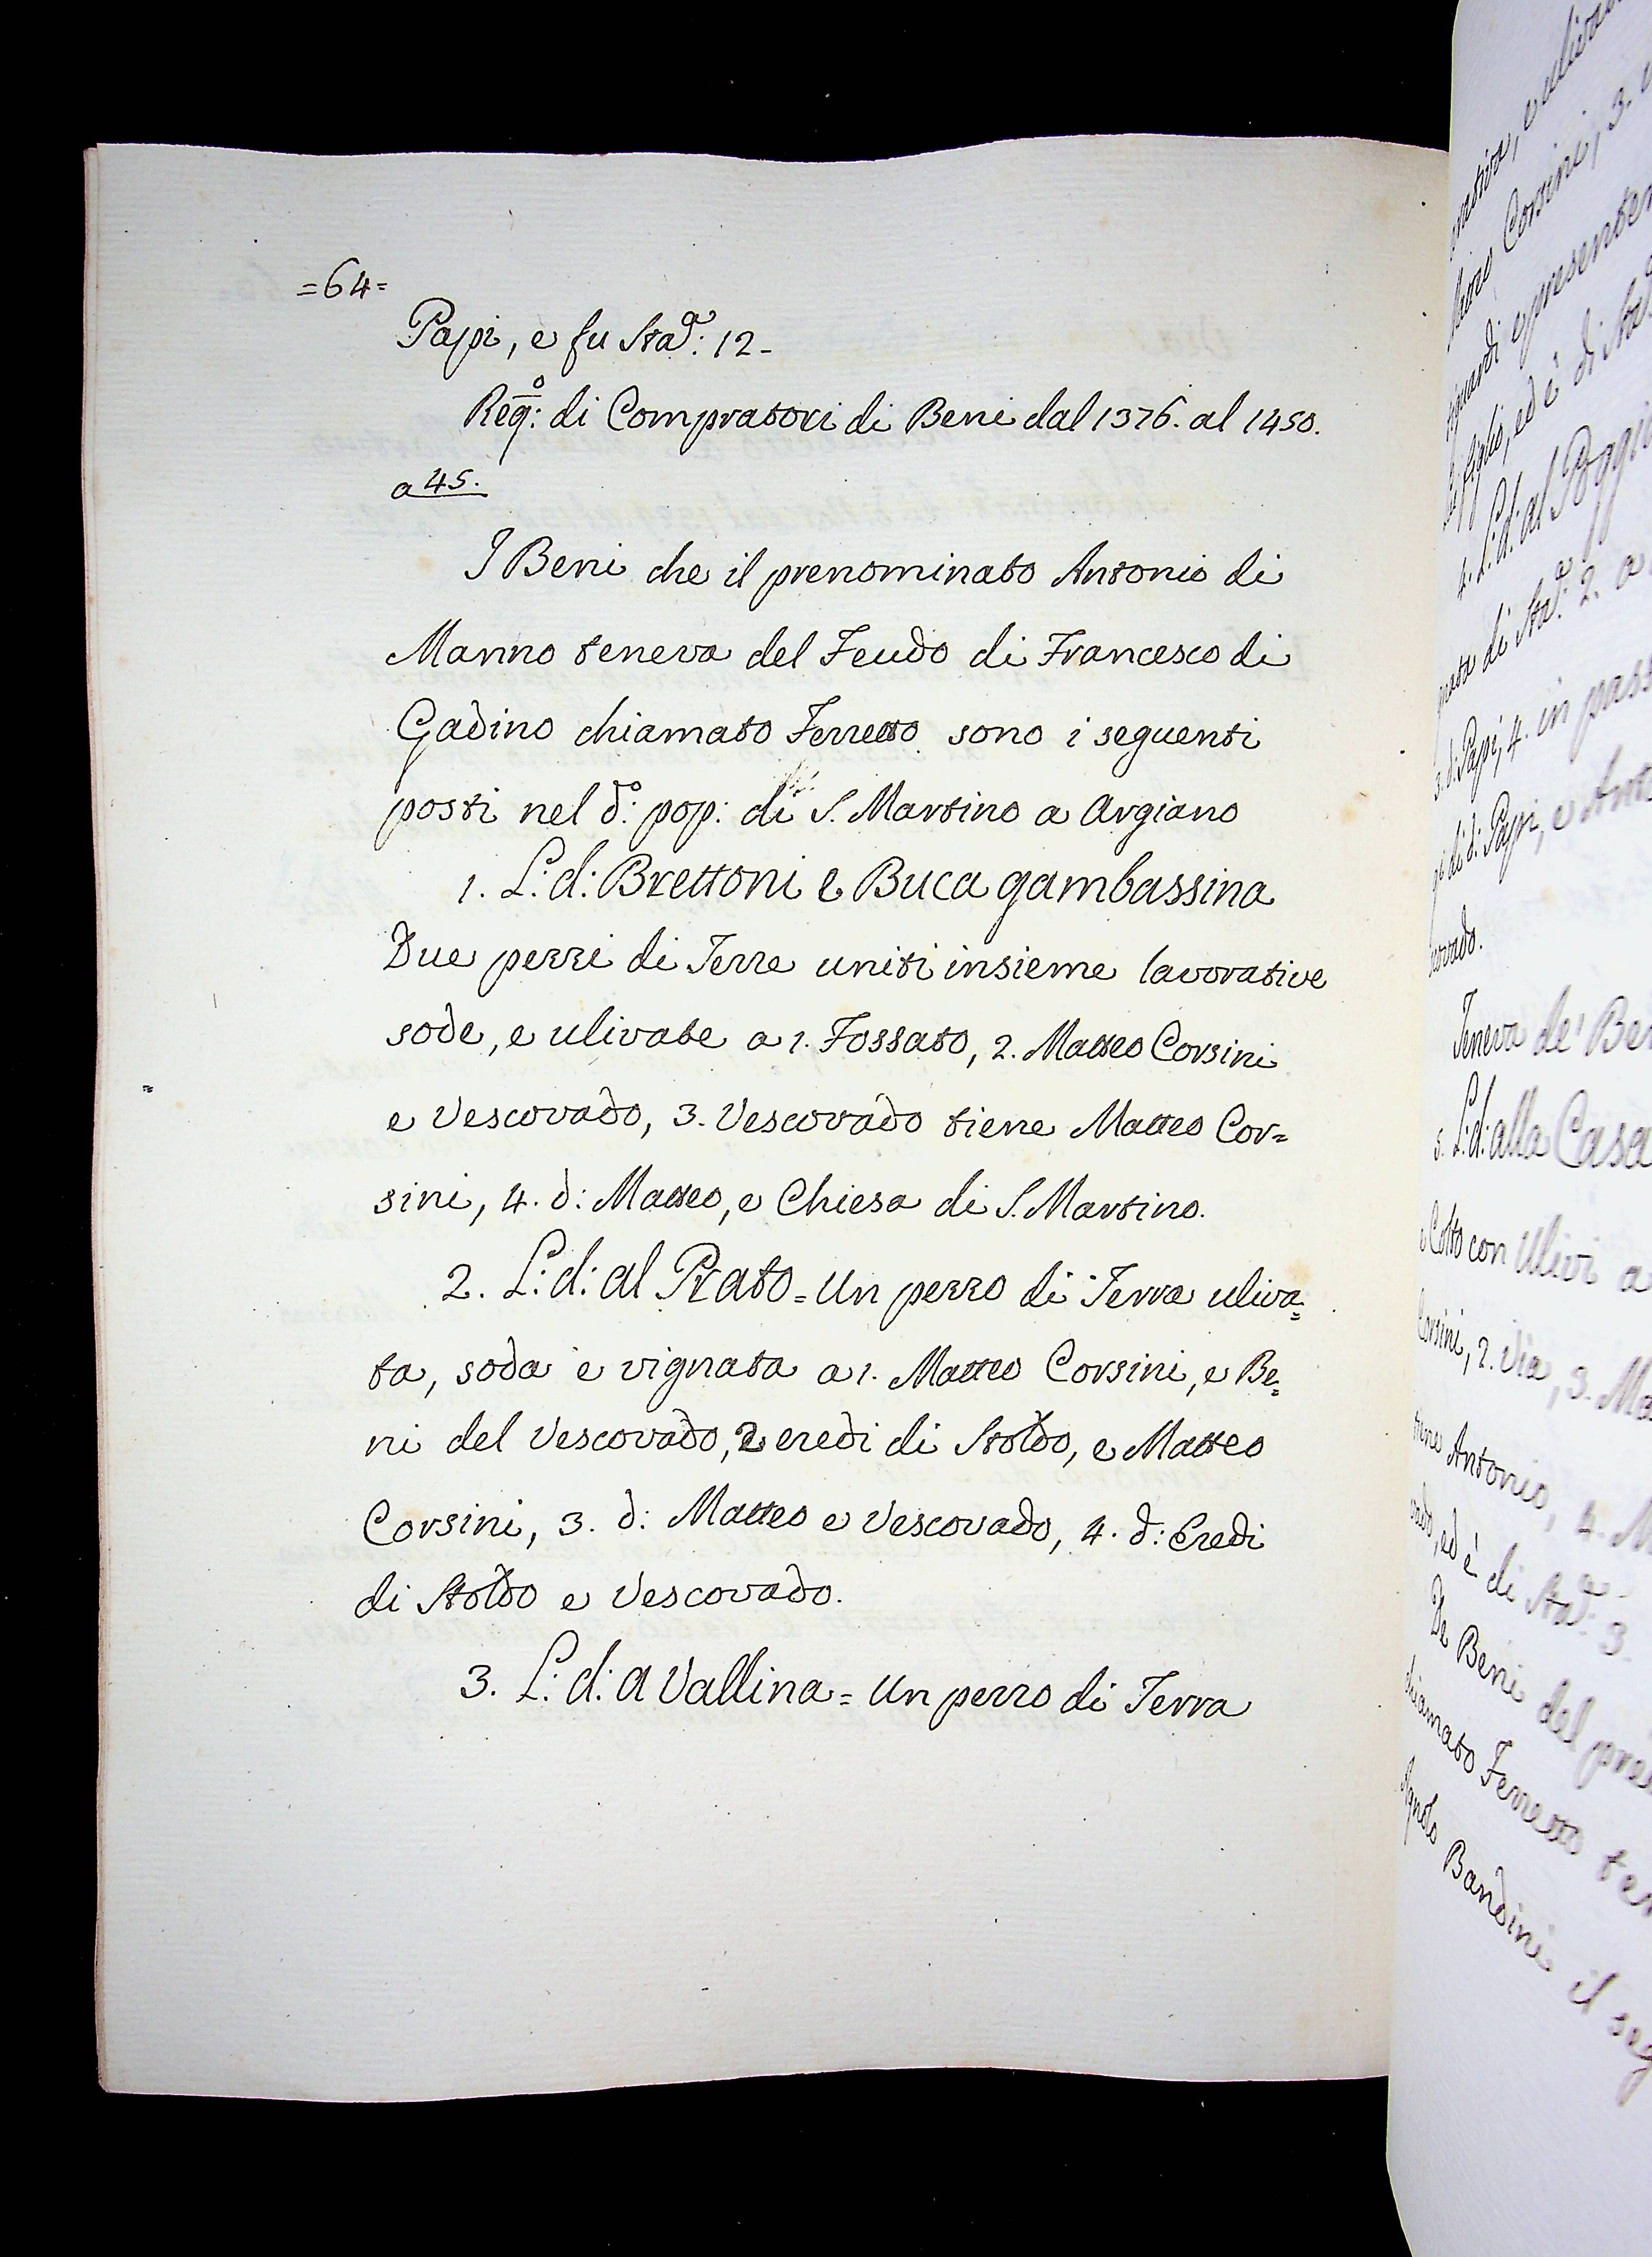 =64=
Papi, e fu Stad.ª: 12-
Reg.º: di Compratori di Beni dal 1376. al 1450.
a 45.
I Beni che il prenominato Antonio di
Manno teneva del Feudo di Francesco di
Gadino chiamato Ferretto sono i seguenti
posti nel d.º: pop: di S. Martino a Argiano
1. L: d: Brettoni e Buca gambassina
Due pezzi di Terre uniti insieme lavorative
sode, e ulivate a 1. Fossato, 2. Matteo Corsini
e Vescovado, 3. Vescovado tiene Matteo Cor=
sini, 4. d: Matteo, e Chiesa di S. Martino.
2. L: d: al Prato = Un pezzo di Terra uliva=
ta, soda e vignata a 1. Matteo Corsini, e Be=
ni del Vescovado, 2 eredi di Stoldo, e Matteo
Corsini, 3. d: Matteo e Vescovado, 4. d: Eredi
di Stoldo e Vescovado.
3. L: d: a Vallina = Un pezzo di Terra
Corsini, 3.
4. L: d: al Poggio
di Stad.ª: 2. a
3. d: Papi, 4. in
di d: Papi, e
Teneva de' Ben
5. L: d: alla Casa
con Ulivi a
Corsini, 2. Via, 3. Ma
Antonio, 4. M
ed è di Stad.ª: 3
De Beni del pre
chiamato Ferretto ten
Agnolo Bandini il seg